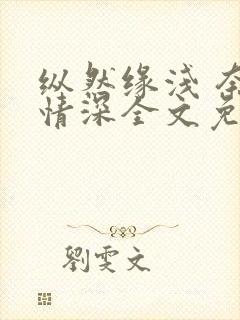 纵然缘浅 奈
情深全文免
劉雯文